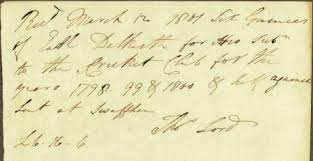 Recd March 12 1801 Six Guineas
of Earl Dalkeith for His Subn
to the Cricket Club for the
years 1798. 99 & 1800 & half a guinea
Lent at Swaffham
Thos Lord
£6-16-6